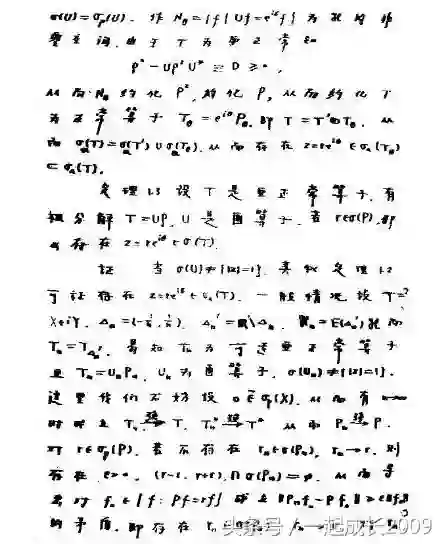 σ(U)=σₚ(U). 作 N_θ={f | Uf=e^{iθ}f} 为
由于 T 为亚正常
P²-UP²U* ≡ D ≥ 0,
从而 N_θ 约化 P², 约化 P, 从而约化 T
为正常算子 T_θ=e^{iθ}P_θ. 即 T=T'⊕T_θ. 从
而 σ(T)=σ(T')∪σ(T_θ). 从而存在 z=re^{iθ}∈σₐ(T_θ)
⊂σₐ(T).
定理1.3 设 T 是亚正常算子, 有
极分解 T=UP, U 是酉算子, 若 r∈σ(P), 则
存在 z=re^{iθ}∈σ(T).
证 当 σ(U)≠{|z|=1}, 定理1.2
可证存在 z=re^{iθ}∈σₐ(T). 一般情况设 T=
X+iY. Δₙ=(-1/n, 1/n). Δₙ'=ℝ\Δₙ.
Tₙ=T_{Δₙ'}. 易知 Tₙ 为可逆亚正常算子
且 Tₙ=UₙPₙ, Uₙ为酉算子, σ(Uₙ)≠{|z|=1}.
这里我们不妨设 0∉σₚ(X). 从而有
时 Tₙ→T, Tₙ*→T* 从而 Pₙ→P.
对 r∈σₚ(P). 若不存在 rₙ∈σ(Pₙ), rₙ→r. 则
存在 ε>0, (r-ε, r+ε)∩σ(Pₙ)=∅. 从而
对 f₀∈{f: Pf=rf} 成立 ‖Pₙf₀-Pf₀‖>ε‖f₀‖
的矛盾. 即存在
头条号/一起成长2009